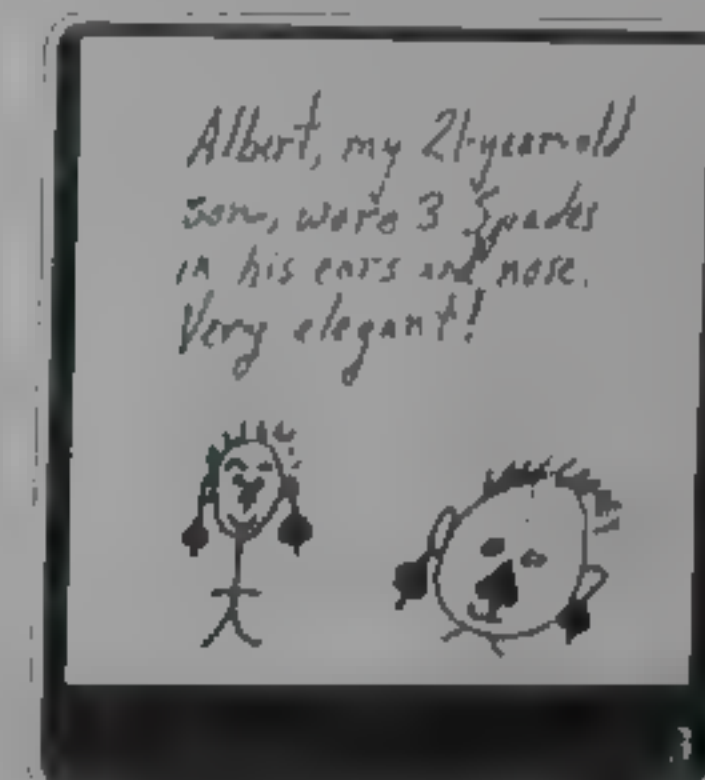 Albert, my 21-year-old
son, wore 3 Spades
in his ears and nose.
Very elegant!
3